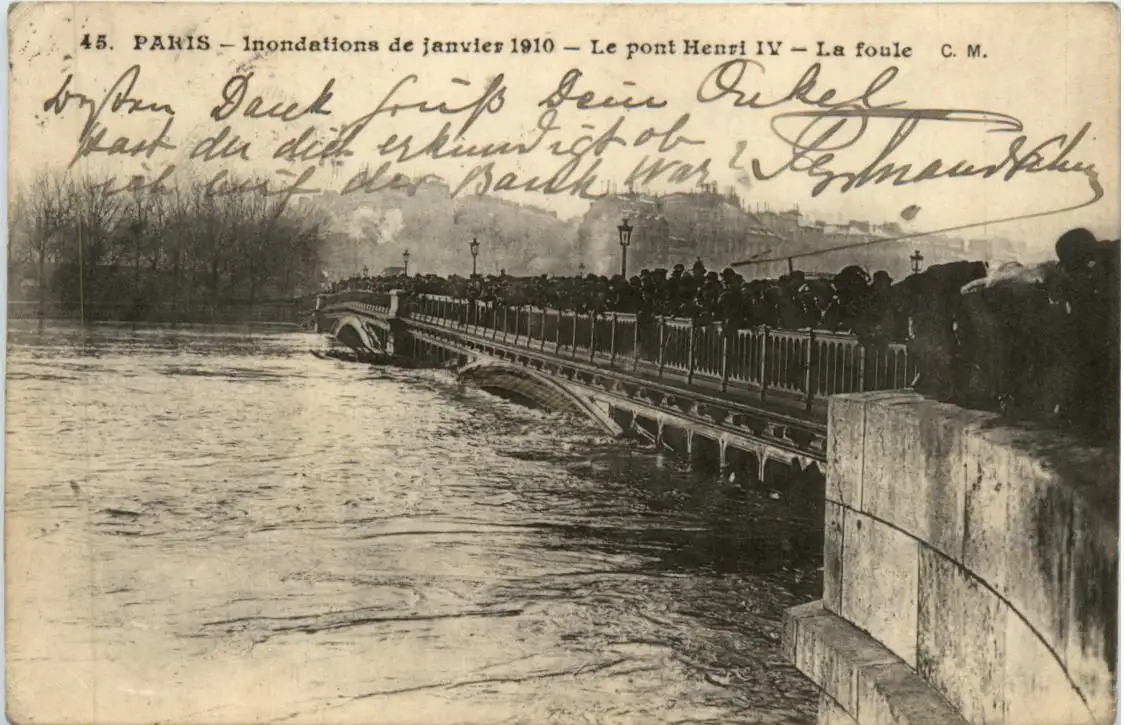 45. PARIS – Inondations de janvier 1910 – Le pont Henri IV – La foule C. M.
Dank Gruß Dein Onkel
hast du dich erkundigt ob
der Bank war?